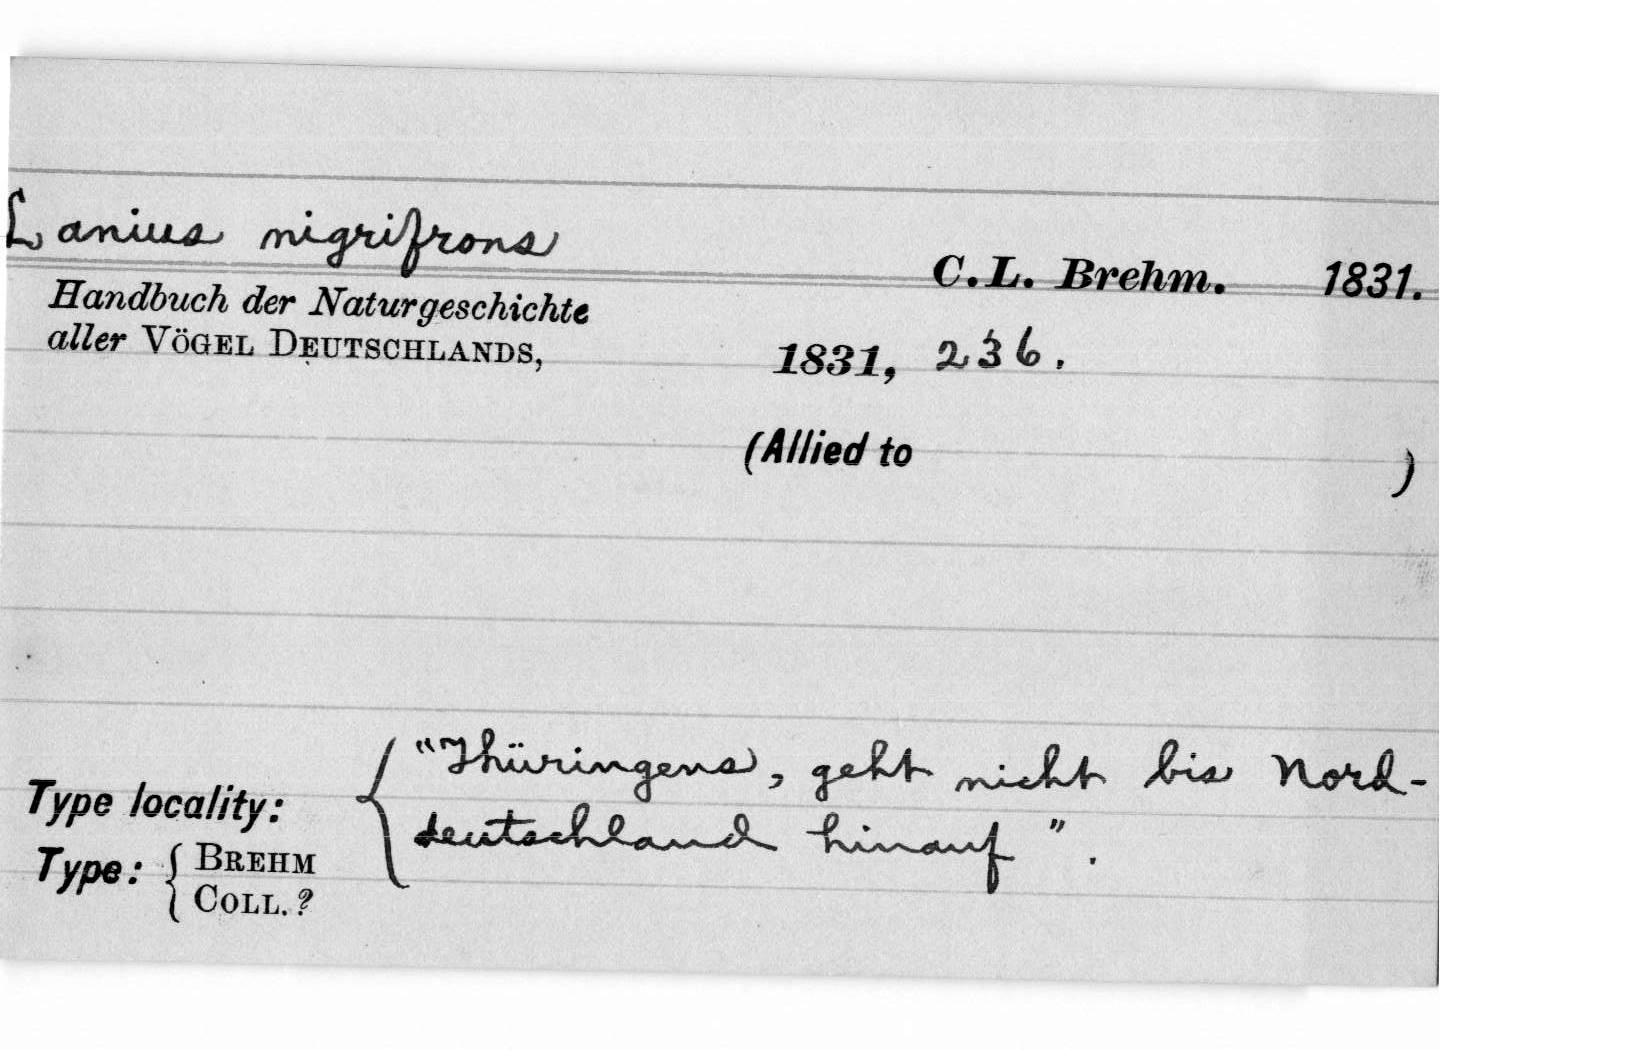 Lanius nigrifrons
C.L. Brehm. 1831.
Handbuch der Naturgeschichte
aller VÖGEL DEUTSCHLANDS,
1831, 236.
(Allied to )
Type locality: { "Thüringens, geht nicht bis Nord-
deutschland hinauf".
Type: { BREHM
COLL. ?